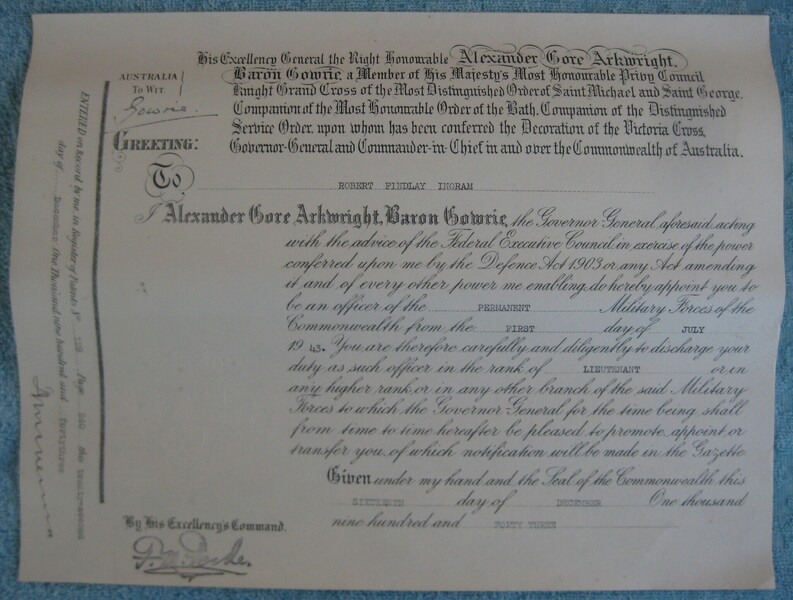 His Excellency General the Right Honourable Alexander Gore Arkwright,
Baron Gowrie, a Member of His Majesty's Most Honourable Privy Council
Knight Grand Cross of the Most Distinguished Order of Saint Michael and Saint George,
Companion of the Most Honourable Order of the Bath, Companion of the Distinguished
Service Order, upon whom has been conferred the Decoration of the Victoria Cross,
Governor-General and Commander-in-Chief in and over the Commonwealth of Australia.
AUSTRALIA
To Wit.
Gowrie.
GREETING:
To
ROBERT FINDLAY INGRAM
I Alexander Gore Arkwright, Baron Gowrie, the Governor General, aforesaid, acting
with the advice of the Federal Executive Council, in exercise of the power
conferred upon me by the Defence Act 1903 or any Act amending
it and of every other power me enabling, do hereby appoint you to
be an officer of the PERMANENT Military Forces of the
Commonwealth from the FIRST day of JULY
1943. You are therefore carefully and diligently to discharge your
duty as such officer in the rank of LIEUTENANT or in
any higher rank or in any other branch of the said Military
Forces to which the Governor-General for the time being shall
from time to time hereafter be pleased to promote, appoint or
transfer you, of which notification will be made in the Gazette
Given under my hand and the Seal of the Commonwealth this
SIXTEENTH day of DECEMBER One thousand
nine hundred and FORTY THREE
By His Excellency's Command.
ENTERED on Record by me, in Register of Patents No Page the twenty-second
day of December One Thousand nine hundred and fortythree